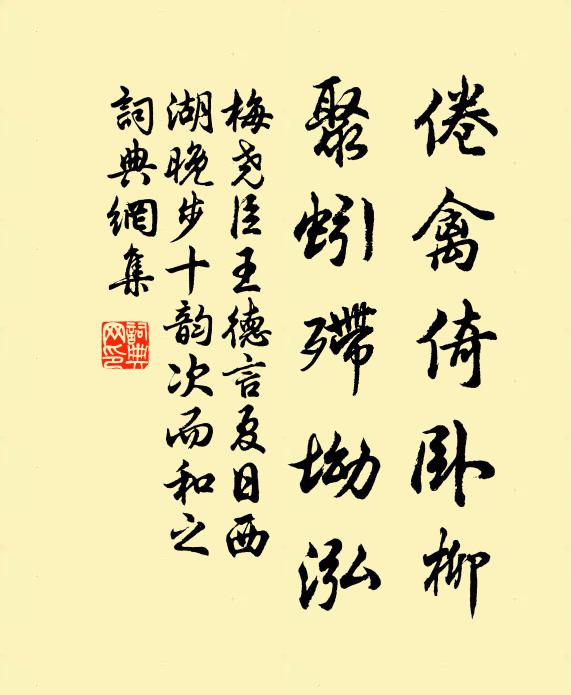 倦禽倚卧柳
聚蚓殢坳泓
梅尧臣王德言夏日西
湖晚步十韵次而和之
詞典網集
詞典
网印